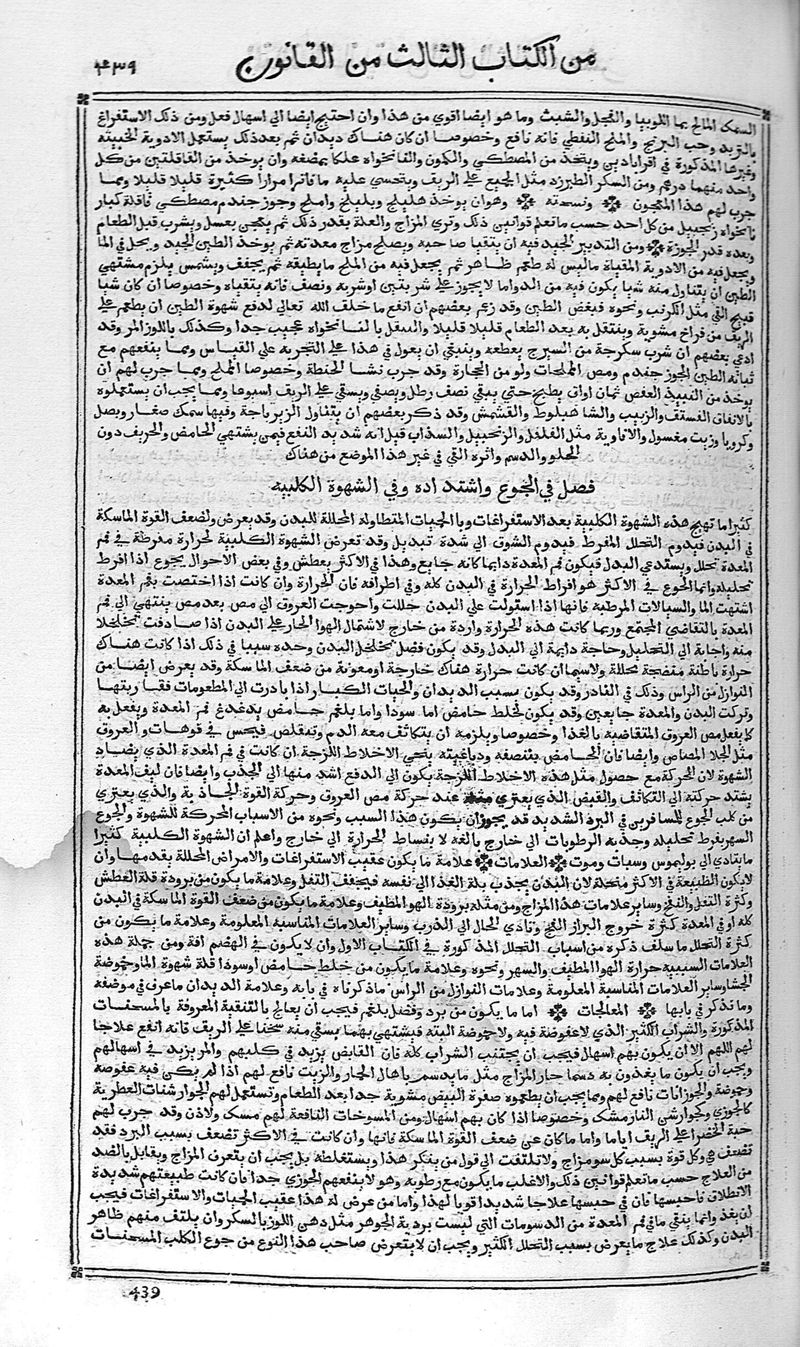 من الكتاب الثالث من القانون
٤٣٩
السمك المالح بماء اللوبيا والفجل والشبث وما هو ايضا اقوي من هذا وان احتيج ايضا الي اسهال فعل ومن ذلك الاستفراغ
بالتربد وحب البرنج والملح النفطي فانه نافع وخصوصا ان كان هناك ديدان ثم بعد ذلك يستعمل الادوية الخبيثه
وغيرها المذكورة في اقراباديي ويتخذ من المصطكي والكمون والنانخواه علكا يمضغه وان يوخذ من القاقلتين من كل
واحد منهما درهم ومن السكر الطبرزد مثل الجميع علي الريف ويتحسي عليه ما فاترا مرارا كثيرة قليلا قليلا ومما
جرب لهم هذا المعجون ونسخته وهو ان يوخذ هليلج وبليلج واملج وجوز جندم مصطكي قاقلة كبار
نانخواه زنجبيل من كل احد حسب ما تعلم قوانين ذلك وتري المزاج والعلة بقدر ذلك ثم يعجن بعسل ويشرب قبل الطعام
وبعده قدر الجوزة ومن التدبير الجيد فيه ان يتقيا صاحبه ويصلح مزاج معدته ثم يوخذ الطين الجيد ويحل في الما
ويجعل فيه من الادوية المقياة ما ليس له طعم ظاهر ثم يجعل فيه من الملح ما يطيقه ثم يجفف ويشمس يلزم مشتهي
الطين ان يتناول منه شيا يكون فيه من الدوا ما لا يجوز علي شربتين او شربه ونصف فانه يتقياه وخصوصا ان كان شيا
قبيح التي مثل الكرنب ونحوه فيغض الطين وقد زعم بعضهم ان انفع ما خلف الله تعالي لدفع شهوة الطين ان يطعم علي
الريف من فراخ مشوية ويتنقل به بعد الطعام قليلا قليلا والتنقل بالنانخواه عجيب جدا وكذلك باللوز المر وقد
ادعي بعضهم ان شرب سكرجة من السيرج يعطعه وينبغي ان يعول في هذا علي التجربه علي القياس ومما ينفعهم مع
نيابه الطين الجوز جندم ومص المملحات ولو من الحجارة وقد جرب نشا الحنطة وخصوصا المملح ومما جرب لهم ان
يوخذ من النبيذ العفص ثمان اواق يطبخ حتي يبقي نصف رطل ويصفي ويسقي علي الريف اسبوعا ومما يجب ان يستعملوه
بالانفاق الفستف والزبيب والشاهبلوط والقشمش وقد ذكر بعضهم ان يتناول الزيرباجة وفيها سمك صغار وبصل
وكرويا وزيت مغسول والافاوية مثل الفلفل والزنجبيل والسذاب قبل انه شديد النفع فيمن يشتهي الحامض والحريف دون
الحلو والدسم واثره التي في غير هذا الموضع من هناك
فصل في الجوع واشتداده وفي الشهوة الكلبيه
كثيرا ما تهيج هذه الشهوة الكلبية بعد الاستفراغات وبالحميات المتطاولة المحللة للبدن وقد يعرض لضعف القوة الماسكة
في البدن فيدوم التحلل المفرط فيدوم الشوق الي شدة تبديل وقد تعرض الشهوة الكلبية لحرارة مفرطة في فم
المعدة تحلل ويستدعي البدل فيكون فم المعدة دايما كانه جايع وهذا في الاكثر يعطش وفي بعض الاحوال يجوع اذا افرط
تحليله وانما الجوع في الاكثر هو افراط الحرارة في البدن كله وفي اطرافه فان الحرارة وان كانت اذا اختصت بفم المعدة
اشتهت الما والسيالات المرطبه فانها اذا استولت علي البدن حللت واحوجت العروق الي مص بعد مص ينتهي الي فم
المعدة بالتقاضي المجتمع وربما كانت هذه الحرارة واردة من خارج لاشتمال الهوا الحار علي البدن اذا صادفت تخلخلا
منه واجابه الي التحليل وحاجة دايمة الي البدل وقد يكون فضل تخلخل البدن وحده سببا في ذلك اذا كانت هناك
حرارة باطنة منضجة محللة ولا سيما ان كانت حرارة هناك خارجة او معونة من ضعف الماسكة وقد يعرض ايضا من
النوازل من الراس وذلك في النادر وقد يكون بسبب الديدان والحيات الكبار اذا بادرت الي المطعومات ففازبها
وتركت البدن والمعدة جايعين وقد يكون لخلط حامض اما سودا واما بلغم حامض يدغدغ فم المعدة ويفعل به
كما يفعل مص العروق المتقاضيه بالغذا وخصوصا ويلزمه ان يتكاثف معه الدم ويتقلص فيحس في فوهات والعروق
مثل الجلا المصاص وايضا فان الحامض بتنصفه ودباغيته ينحي الاخلاط اللزجة ان كانت في فم المعدة الذي يضاد
الشهوة لان الحركة مع حصول مثل هذه الاخلاط اللزجة يكون الي الدفع اشد منها الي الجذب وايضا فان ليف المعدة
يشتد حركته الي التكاثف والقبض الذي يعتري مثله عند حركة مص العروق وحركة القوة الجاذبة والذي يعتري
من كلب الجوع للمسافرين في البرد الشديد قد يجوز ان يكون هذا السبب ونحوه من الاسباب المحركة للشهوة والجوع
السهر بفرط تحليله وجذبه الرطوبات الي خارج بالغه لا نبساط الحرارة الي خارج واعلم ان الشهوة الكلبية كثيرا
ما يتادي الي بوليموس وسبات وموت العلامات علامة ما يكون عقيب الاستفراغات والامراض المحللة بقدمها وان
لا يكون الطبيعة في الاكثر متحلة لان البدن يجذب بلة الغذا الي نفسه فيجفف الثفل وعلامة ما يكون من برودة قلة العطش
وكثرة الثفل والنفخ وساير علامات هذا المزاج ومن مثله برودة الهوا المطيف وعلامة ما يكون من ضعف القوة الماسكة في البدن
كله او في المعدة كثرة خروج البراز الفج وتادي الحال الي الذرب وساير العلامات المناسبه المعلومة وعلامة ما يكون من
كثرة التحلل ما سلف ذكره من اسباب التحلل المذكورة في الكتاب الاول وان لا يكون في الهضم افة ومن جملة هذه
العلامات السببية حرارة الهوا المطيف والسهر ونحوه وعلامة ما يكون من خلط حامض او سودا قلة شهوة الما وحموضة
الجشا وساير العلامات المناسبة المعلومة وعلامات النوازل من الراس ما ذكرناه في بابه وعلامة الديدان ما عرف في موضعه
وما نذكر في بابها المعالجات اما ما يكون من برد وفضل بلغم فيجب ان يعالج بالتنقية المعروفة بالمسخنات
المذكورة والشراب الكثير الذي لا عفوضة فيه ولا حموضة البته فيشتهي بهما يسقي منه سخنا علي الريف فانه انفع علاجا
لهم اللهم الا ان يكون بهم اسهال فيجب ان يجتنب الشراب كله فان القابض يزيد في كلبهم والمر يزيد في اسهالهم
ويجب ان يكون ما يغذون به دسما حار المزاج مثل ما يدسم باهال الجمار والزيت نافع لهم اذا لم يكن فيه عفوصه
وحموضة والجوزانات نافع لهم ومما يجب ان يطعموه صفرة البيض مشوية جدا بعد الطعام وتستعمل لهم الجوارشنات العطرية
كالجوزي وجوارشن النارمشك وخصوصا اذا كان بهم اسهال ومن المسوحات النافعة لهم مسك ولاذن وقد جرب لهم
حبة الخضرا علي الريف اياما واما ما كان عن ضعف القوة الماسكة فانها وان كانت في الاكثر تضعف بسبب البرد فقد
تضعف في وكل قوة بسبب كل سو مزاج ولا تلتفت الي قول من ينكر هذا ويستغلطه بل يجب ان يتعرف المزاج ويقابل بالضد
من العلاج حسب ما تعلم قوانين ذلك والاغلب ما يكون مع رطوبه وهو لا ينفعهم الجوزي جدا فان كانت طبيعتهم شديدة
الانطلاق فاحبسها فان في حبسها علاجا شديدا قويا لهذا واما من عرض له هذا عقيب الحميات والاستفراغات فيجب
ان يغذ وانما ينقي ما في فم المعدة من الدسومات التي ليست بردية الجوهر مثل دهن اللوز بالسكر وان يلتف منهم ظاهر
البدن وكذلك علاج ما يعرض بسبب التحلل الكثير ويجب ان لا يتعرض صاحب هذا النوع من جوع الكلب المسخنات
439